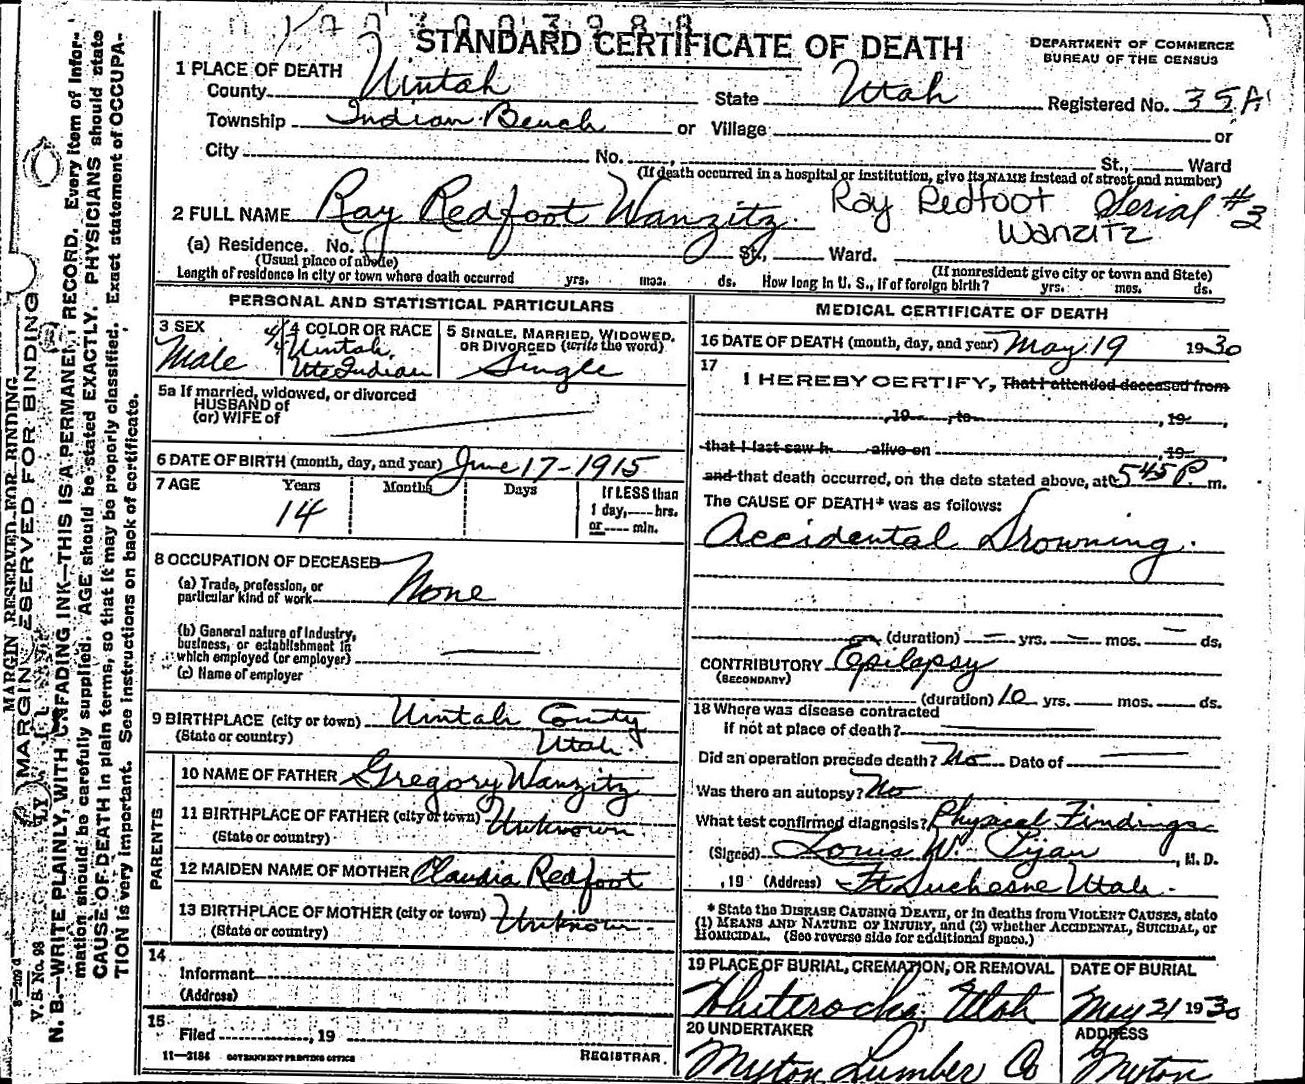 STANDARD CERTIFICATE OF DEATH
DEPARTMENT OF COMMERCE
BUREAU OF THE CENSUS
1 PLACE OF DEATH
County Uintah State Utah Registered No. 35A
Township Indian Bench or Village or
City No. St., Ward
(If death occurred in a hospital or institution, give its NAME instead of street and number)
2 FULL NAME Ray Redfoot Wanzitz Ray Redfoot Wanzitz Serial #3
(a) Residence. No. St., Ward.
(Usual place of abode) (If nonresident give city or town and State)
Length of residence in city or town where death occurred yrs. mos. ds. How long in U. S., if of foreign birth? yrs. mos. ds.
PERSONAL AND STATISTICAL PARTICULARS
3 SEX
Male
4/4 4 COLOR OR RACE
Uintah
Ute Indian
5 SINGLE, MARRIED, WIDOWED,
OR DIVORCED (write the word)
Single
5a If married, widowed, or divorced
HUSBAND of
(or) WIFE of
6 DATE OF BIRTH (month, day, and year) June 17-1915
7 AGE Years Months Days If LESS than
14 1 day, hrs.
or min.
8 OCCUPATION OF DECEASED
(a) Trade, profession, or
particular kind of work None
(b) General nature of Industry,
business, or establishment in
which employed (or employer)
(c) Name of employer
9 BIRTHPLACE (city or town) Uintah County
(State or country) Utah
PARENTS
10 NAME OF FATHER Gregory Wanzitz
11 BIRTHPLACE OF FATHER (city or town) Unknown
(State or country)
12 MAIDEN NAME OF MOTHER Claudia Redfoot
13 BIRTHPLACE OF MOTHER (city or town) Unknown
(State or country)
14
Informant
(Address)
15
Filed , 19
REGISTRAR.
11-3184 GOVERNMENT PRINTING OFFICE
MEDICAL CERTIFICATE OF DEATH
16 DATE OF DEATH (month, day, and year) May 19 1930
17
I HEREBY CERTIFY, That I attended deceased from
, 19 , to , 19 ,
that I last saw h alive on , 19 ,
and that death occurred, on the date stated above, at 5 45 P. m.
The CAUSE OF DEATH* was as follows:
Accidental Drowning.
(duration) yrs. mos. ds.
CONTRIBUTORY Epilepsy
(SECONDARY)
(duration) 10 yrs. mos. ds.
18 Where was disease contracted
if not at place of death?
Did an operation precede death? No Date of
Was there an autopsy? No
What test confirmed diagnosis? Physical Findings
(Signed) Louis W. , M. D.
, 19 (Address) Ft Duchesne Utah.
* State the DISEASE CAUSING DEATH, or in deaths from VIOLENT CAUSES, state
(1) MEANS AND NATURE OF INJURY, and (2) whether ACCIDENTAL, SUICIDAL, or
HOMICIDAL. (See reverse side for additional space.)
19 PLACE OF BURIAL, CREMATION, OR REMOVAL
Whiterocks, Utah
DATE OF BURIAL
May 21 1930
20 UNDERTAKER
Myton Lumber Co
ADDRESS
Myton
MARGIN RESERVED FOR BINDING
MARGIN RESERVED FOR BINDING
V. S. No. 98
N. B.—WRITE PLAINLY, WITH UNFADING INK—THIS IS A PERMANENT RECORD. Every item of infor-
mation should be carefully supplied. AGE should be stated EXACTLY. PHYSICIANS should state
CAUSE OF DEATH in plain terms, so that it may be properly classified. Exact statement of OCCUPA-
TION is very important. See instructions on back of certificate.